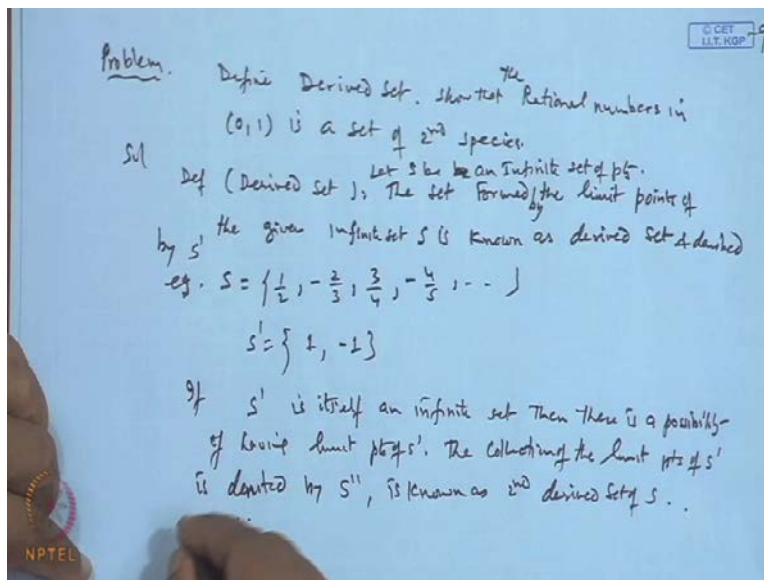 © CET
I.I.T. KGP
Problem. Define Derived Set. Show that the Rational numbers in
(0,1) is a set of 2nd species.
Sol
Let S be an Infinite set of pts.
Def (Derived Set): The set Formed by the limit points of
the given infinite set S is known as derived set & denoted
by S'
eg. S = { 1/2, -2/3, 3/4, -4/5, ... }
S' = { 1, -1 }
If S' is itself an infinite set Then there is a possibility
of having limit pts of S'. The Collection of the limit pts of S'
is denoted by S'', is known as 2nd derived set of S.
NPTEL